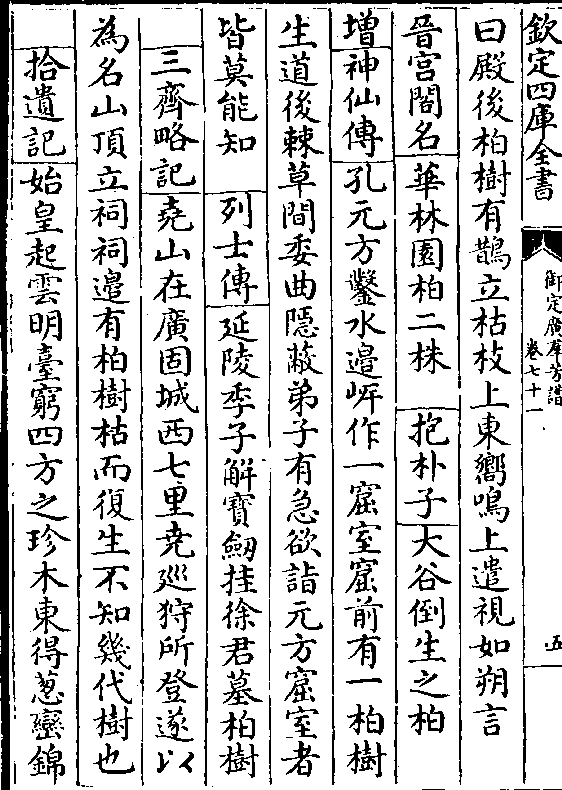 欽定四庫全書
御定廣羣芳譜
卷七十一
五
曰殿後柏樹有鵲立枯枝上東嚮鳴上遣視如朔言
晉宫閣名 華林園柏二株 抱朴子 大谷倒生之柏
增 神仙傳 孔元方鑿水邉岸作一窟室窟前有一柏樹
生道後棘草間委曲隱蔽弟子有急欲詣元方窟室者
皆莫能知 列士傳 延陵季子解寶劒挂徐君墓柏樹
三齊略記 堯山在廣固城西七里堯廵狩所登遂以
為名山頂立祠祠邉有柏樹枯而復生不知幾代樹也
拾遺記 始皇起雲明臺窮四方之珍木東得葱巒錦